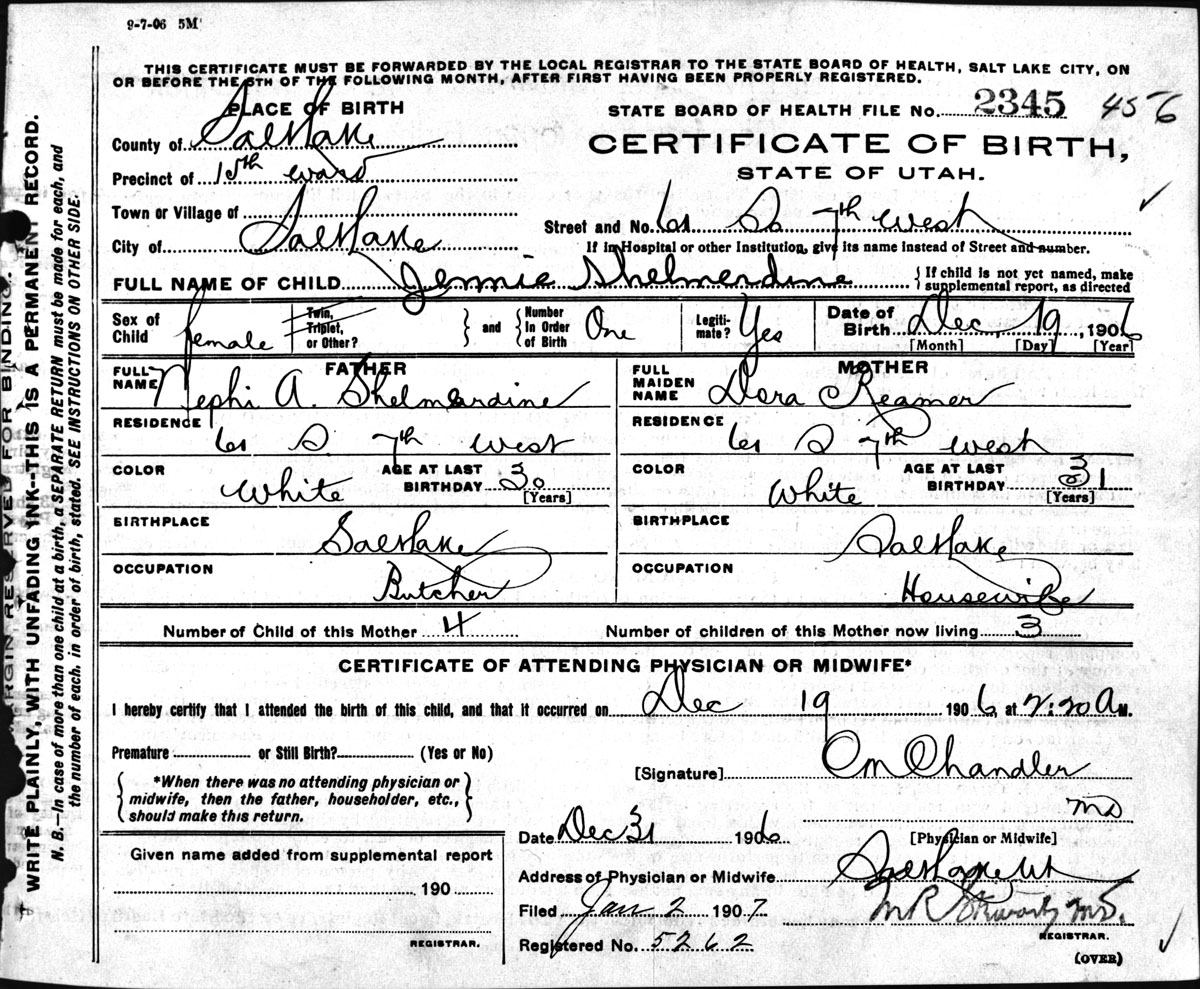 9-7-06 5M
THIS CERTIFICATE MUST BE FORWARDED BY THE LOCAL REGISTRAR TO THE STATE BOARD OF HEALTH, SALT LAKE CITY, ON
OR BEFORE THE 5TH OF THE FOLLOWING MONTH, AFTER FIRST HAVING BEEN PROPERLY REGISTERED.
PLACE OF BIRTH
County of Salt Lake
Precinct of 15th ward
Town or Village of
City of Salt Lake
STATE BOARD OF HEALTH FILE No. 2345 456
CERTIFICATE OF BIRTH,
STATE OF UTAH.
Street and No. 61 So 7th West
If in Hospital or other Institution, give its name instead of Street and number.
FULL NAME OF CHILD Jennie Shelmerdine { If child is not yet named, make
supplemental report, as directed
Sex of Child female
Twin, Triplet, or Other?
and { Number In Order of Birth One
Legiti- mate? Yes
Date of Birth Dec 19, 1906
[Month] [Day] [Year]
FATHER
FULL NAME Nephi A. Shelmerdine
RESIDENCE 61 S. 7th West
COLOR White AGE AT LAST BIRTHDAY 30 [Years]
BIRTHPLACE Salt Lake
OCCUPATION Butcher
MOTHER
FULL MAIDEN NAME Dora Reamer
RESIDENCE 61 S 7th West
COLOR White AGE AT LAST BIRTHDAY 31 [Years]
BIRTHPLACE Salt Lake
OCCUPATION Housewife
Number of Child of this Mother 4 Number of children of this Mother now living 3
CERTIFICATE OF ATTENDING PHYSICIAN OR MIDWIFE*
I hereby certify that I attended the birth of this child, and that it occurred on Dec 19 1906, at 2:20 A M.
Premature or Still Birth? (Yes or No)
{ *When there was no attending physician or
midwife, then the father, householder, etc.,
should make this return. }
[Signature] C M Chandler
MD
[Physician or Midwife]
Date Dec 31 1906
Address of Physician or Midwife Salt Lake Ut
Filed Jan 2 1907
M R MD.
REGISTRAR.
Registered No. 5262
(OVER)
Given name added from supplemental report
190
REGISTRAR.
MARGIN RESERVED FOR BINDING.
WRITE PLAINLY, WITH UNFADING INK--THIS IS A PERMANENT RECORD.
N. B.—In case of more than one child at a birth, a SEPARATE RETURN must be made for each, and
the number of each, in order of birth, stated. SEE INSTRUCTIONS ON OTHER SIDE.